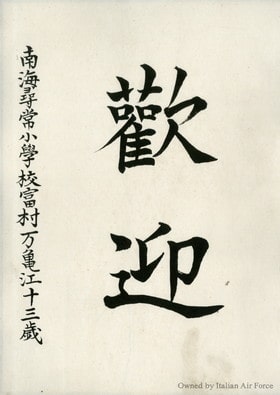 歡迎
南海尋常小學校富村万亀江十三歳
Owned by Italian Air Force